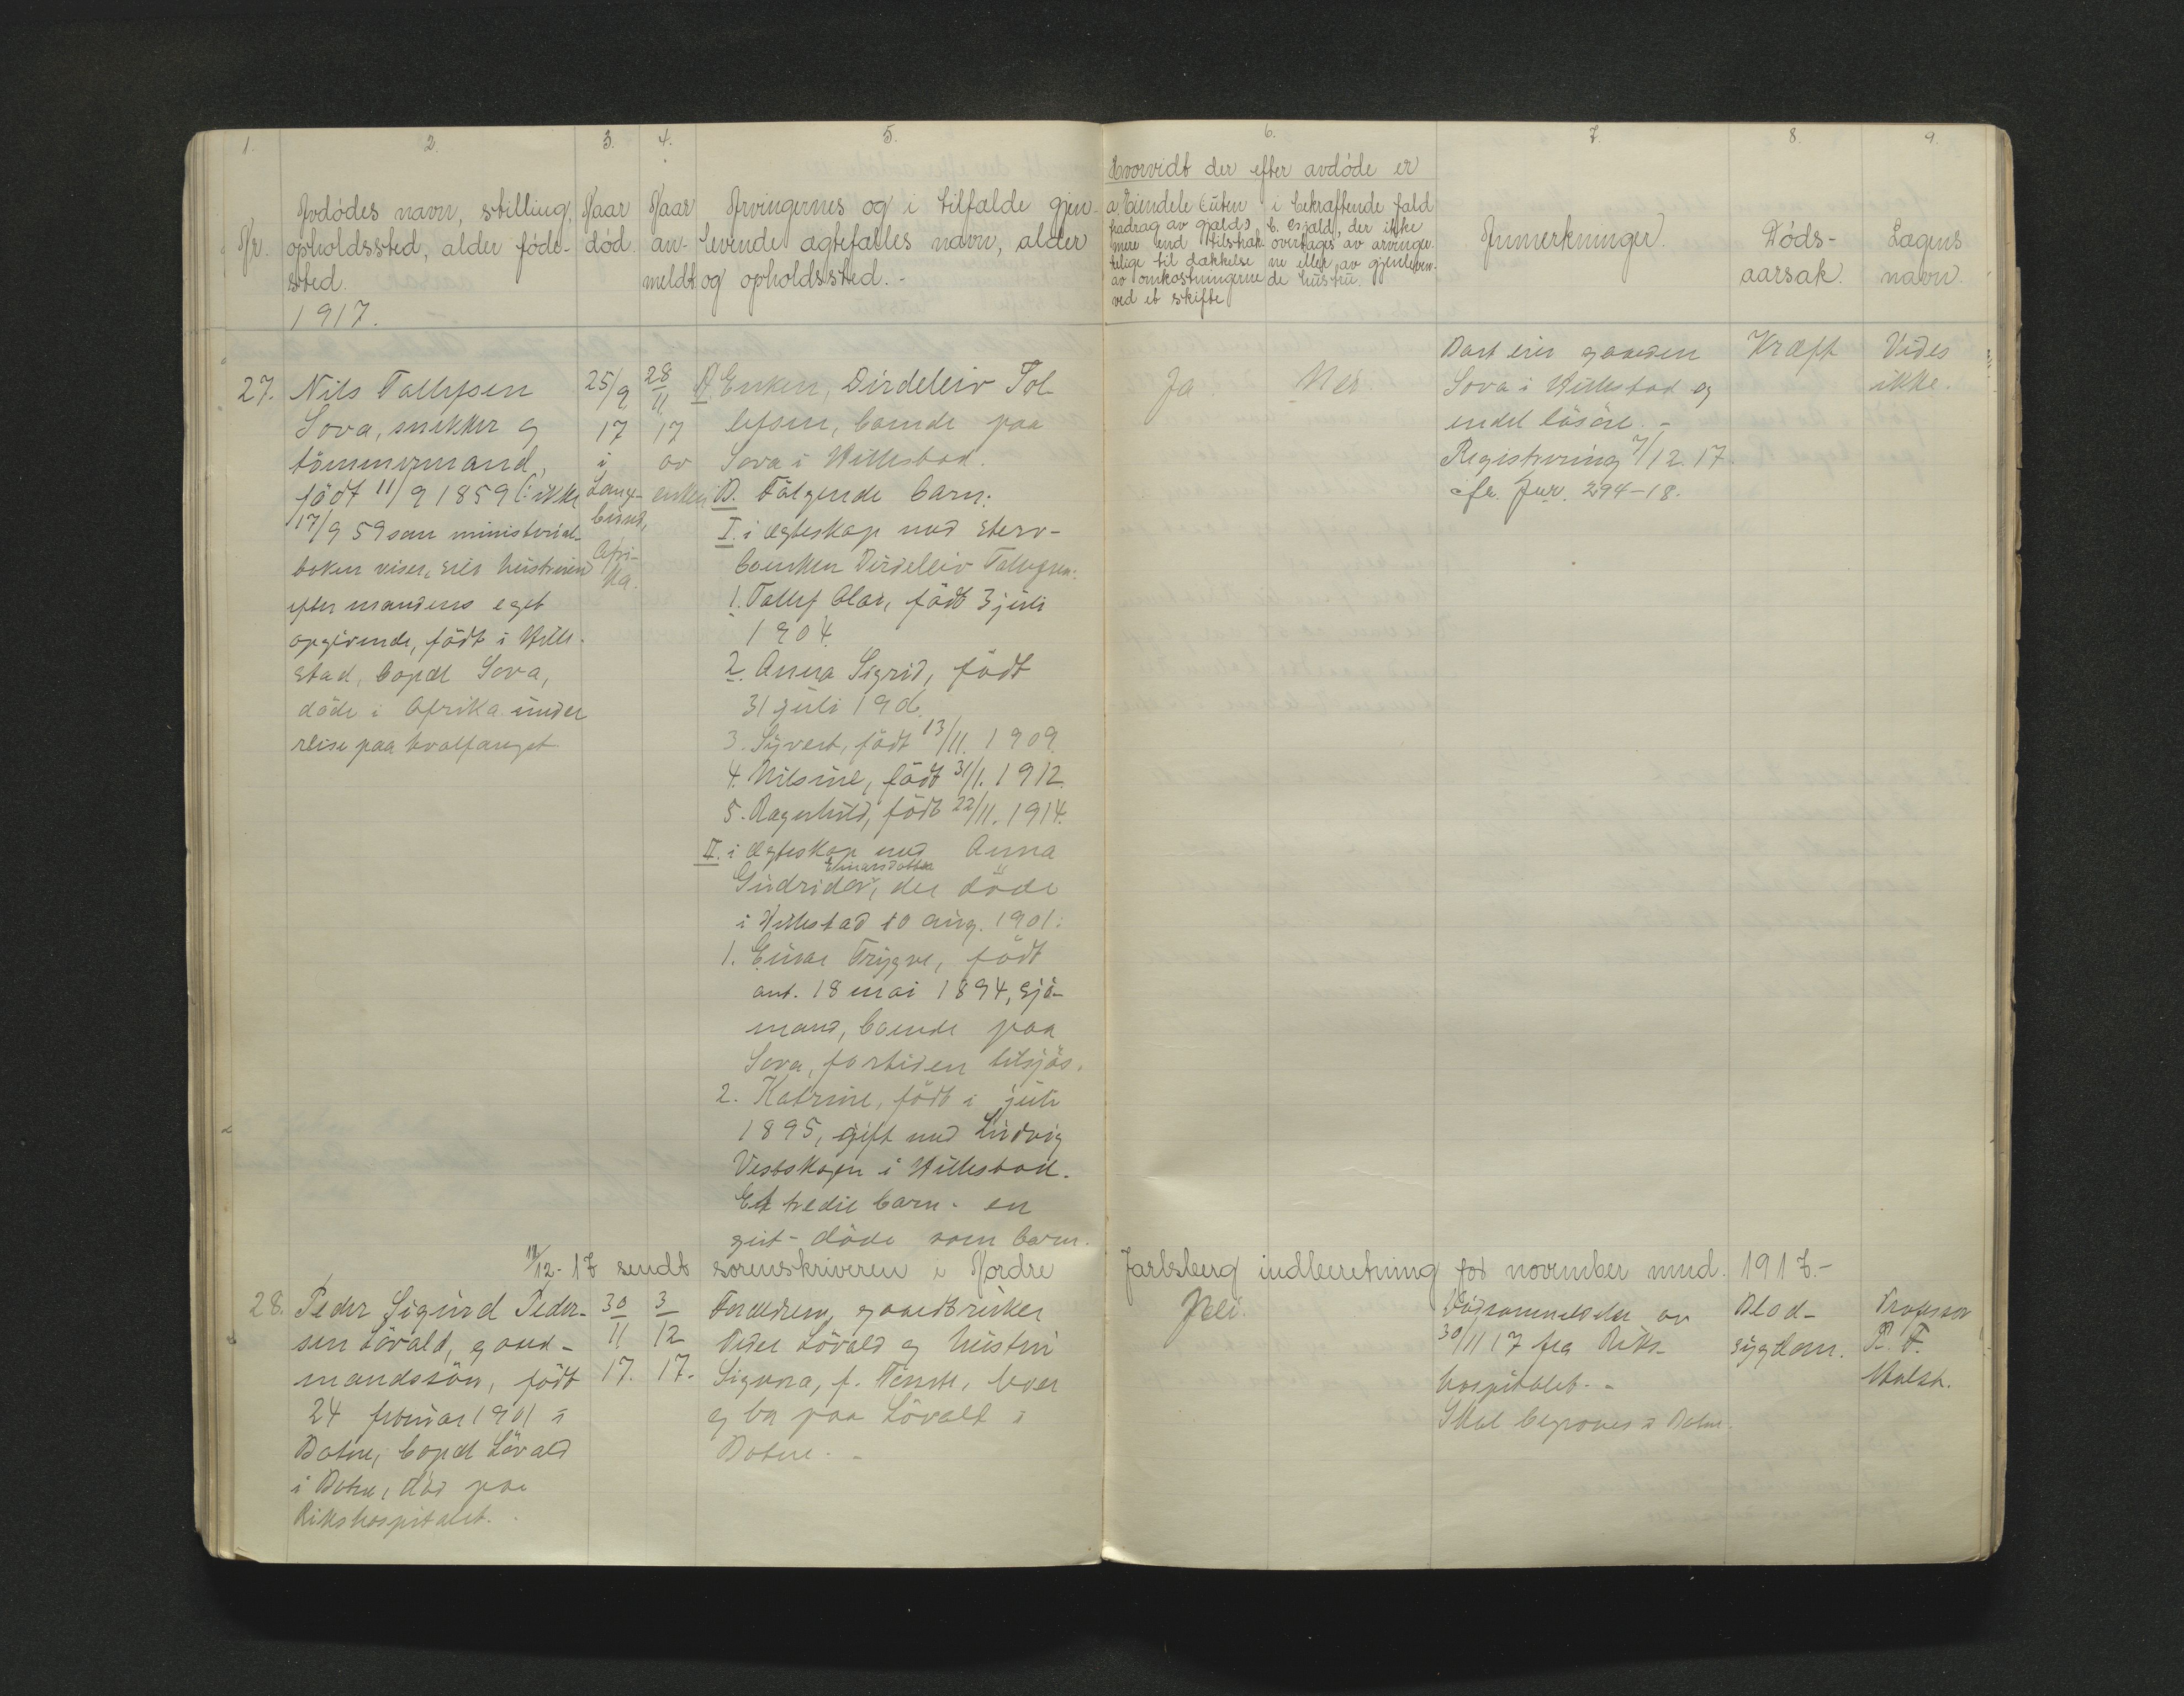 1. 2. 3. 4. 5. 6. 7. 8. 9.
Nr.
Avdödes navn, stilling,
opholdssted, alder föde-
sted.
1917.
Naar
död.
Naar
an-
meldt
Arvingernes og i tilfælde gjen-
levende ægtefælles navn, alder
og opholdssted. -
Hvorvidt der efter avdöde er
a. Eiendele (uten
fradrag av gjæld)
mere end tilstræk-
kelige til dækkelse
av omkostningerne
ved et skifte
i bekræftende fald
b. Gjæld, der ikke
overtages av arvinger-
ne eller av gjenleven-
de hustru.
Anmerkninger.
Döds-
aarsak.
Lægens
navn.
27.
Nils Tollefsen
Sova, snekker og
tömmermand,
födt 11/9 1859 (: ikke
17/9 59 som ministerial-
boken viser, sier hustruen
efter mandens eget
opgivende, födt i Hille-
stad, bopæl Sova,
döde i Afrika under
reise paa hvalfanget
25/9
17
i
Lang-
bund,
Afri-
ka.
28
11
17
av
enken
A. Enken, Dirdeleiv Tol-
lefsen, boende paa
Sova i Hillestad.
B. Fölgende barn:
I. i ægteskap med sterv-
boenken Dirdeleiv Tollefsen:
1. Tollef Olai, födt 3 juli
1904
2. Anna Sigrid, födt
31 juli 1906
3. Syvert, födt 13/11. 1909.
4. Nilsine, födt 31/1. 1912.
5. Ragnhild, födt 22/11. 1914.
II. i ægteskap med Anna
Einarsdatter
Gudrider, der döde
i Hillestad 10 aug. 1901:
1. Einar Trygve, födt
ant. 18 mai 1894, sjö-
mand, boende paa
Sova, fortiden tilsjös.
2. Katrine, födt i juli
1895, gift med Ludvig
Vestskogen i Hillestad.
Et tredie barn - en
gut - döde som barn.
Ja.
Nei
Bart eier gaarden
Sova i Hillestad og
endel lösöre. -
Registrering 7/12. 17.
cfr. Jur. 294-18.
Kræft
Vides
ikke.
11/12 - 17 sendt sorenskriveren i Nordre Jarlsberg indberetning for november mnd. 1917. -
28.
Peder Sigurd Peder-
sen Lövald, gaard-
mandssön, födt
24 februar 1901 i
Botne, bopæl Lövald
i Botne, död paa
Rikshospitalet.
30
11
17.
3
12
17.
Forældrene, gaardbruker
Peder Lövald og hustru
Signora, f. , lever
og bor paa Lövald i
Botne. -
Nei.
Dödsanmeldelse av
30/11 17 fra Riks-
hospitalet. -
Skal begraves i Botne.
Blod-
sygdom.
Professor
P. F.
Holst.